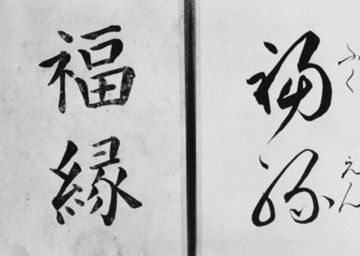 福縁
福縁
ふく
えん